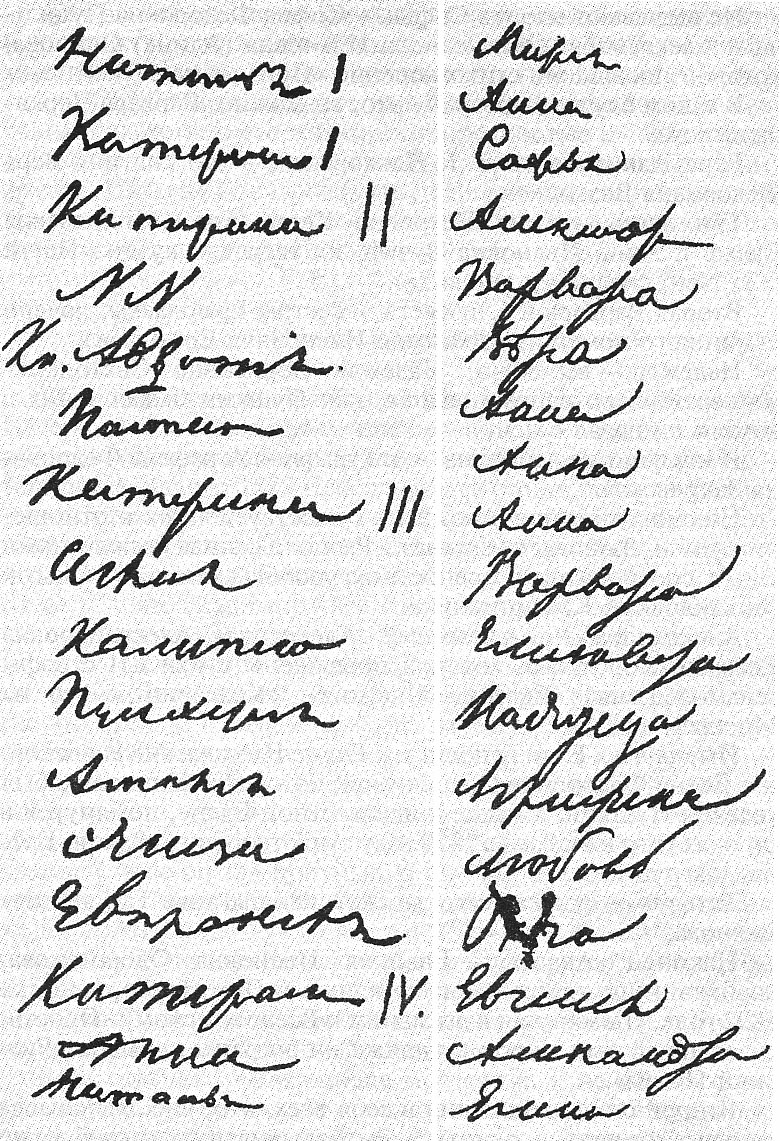 Наталья I
Катерина I
Катерина II
N N
Кн. Авдотия.
Настасья
Катерина III
Аглая
Калипсо
Пульхерия
Амалия
Элиза
Евпраксея
Катерина IV.
Анна
Наталья
Мария
Анна
Софья
Александра
Варвара
Вера
Анна
Анна
Анна
Варвара
Елизавета
Надежда
Аграфена
Любовь
Ольга
Евгения
Александра
Елена